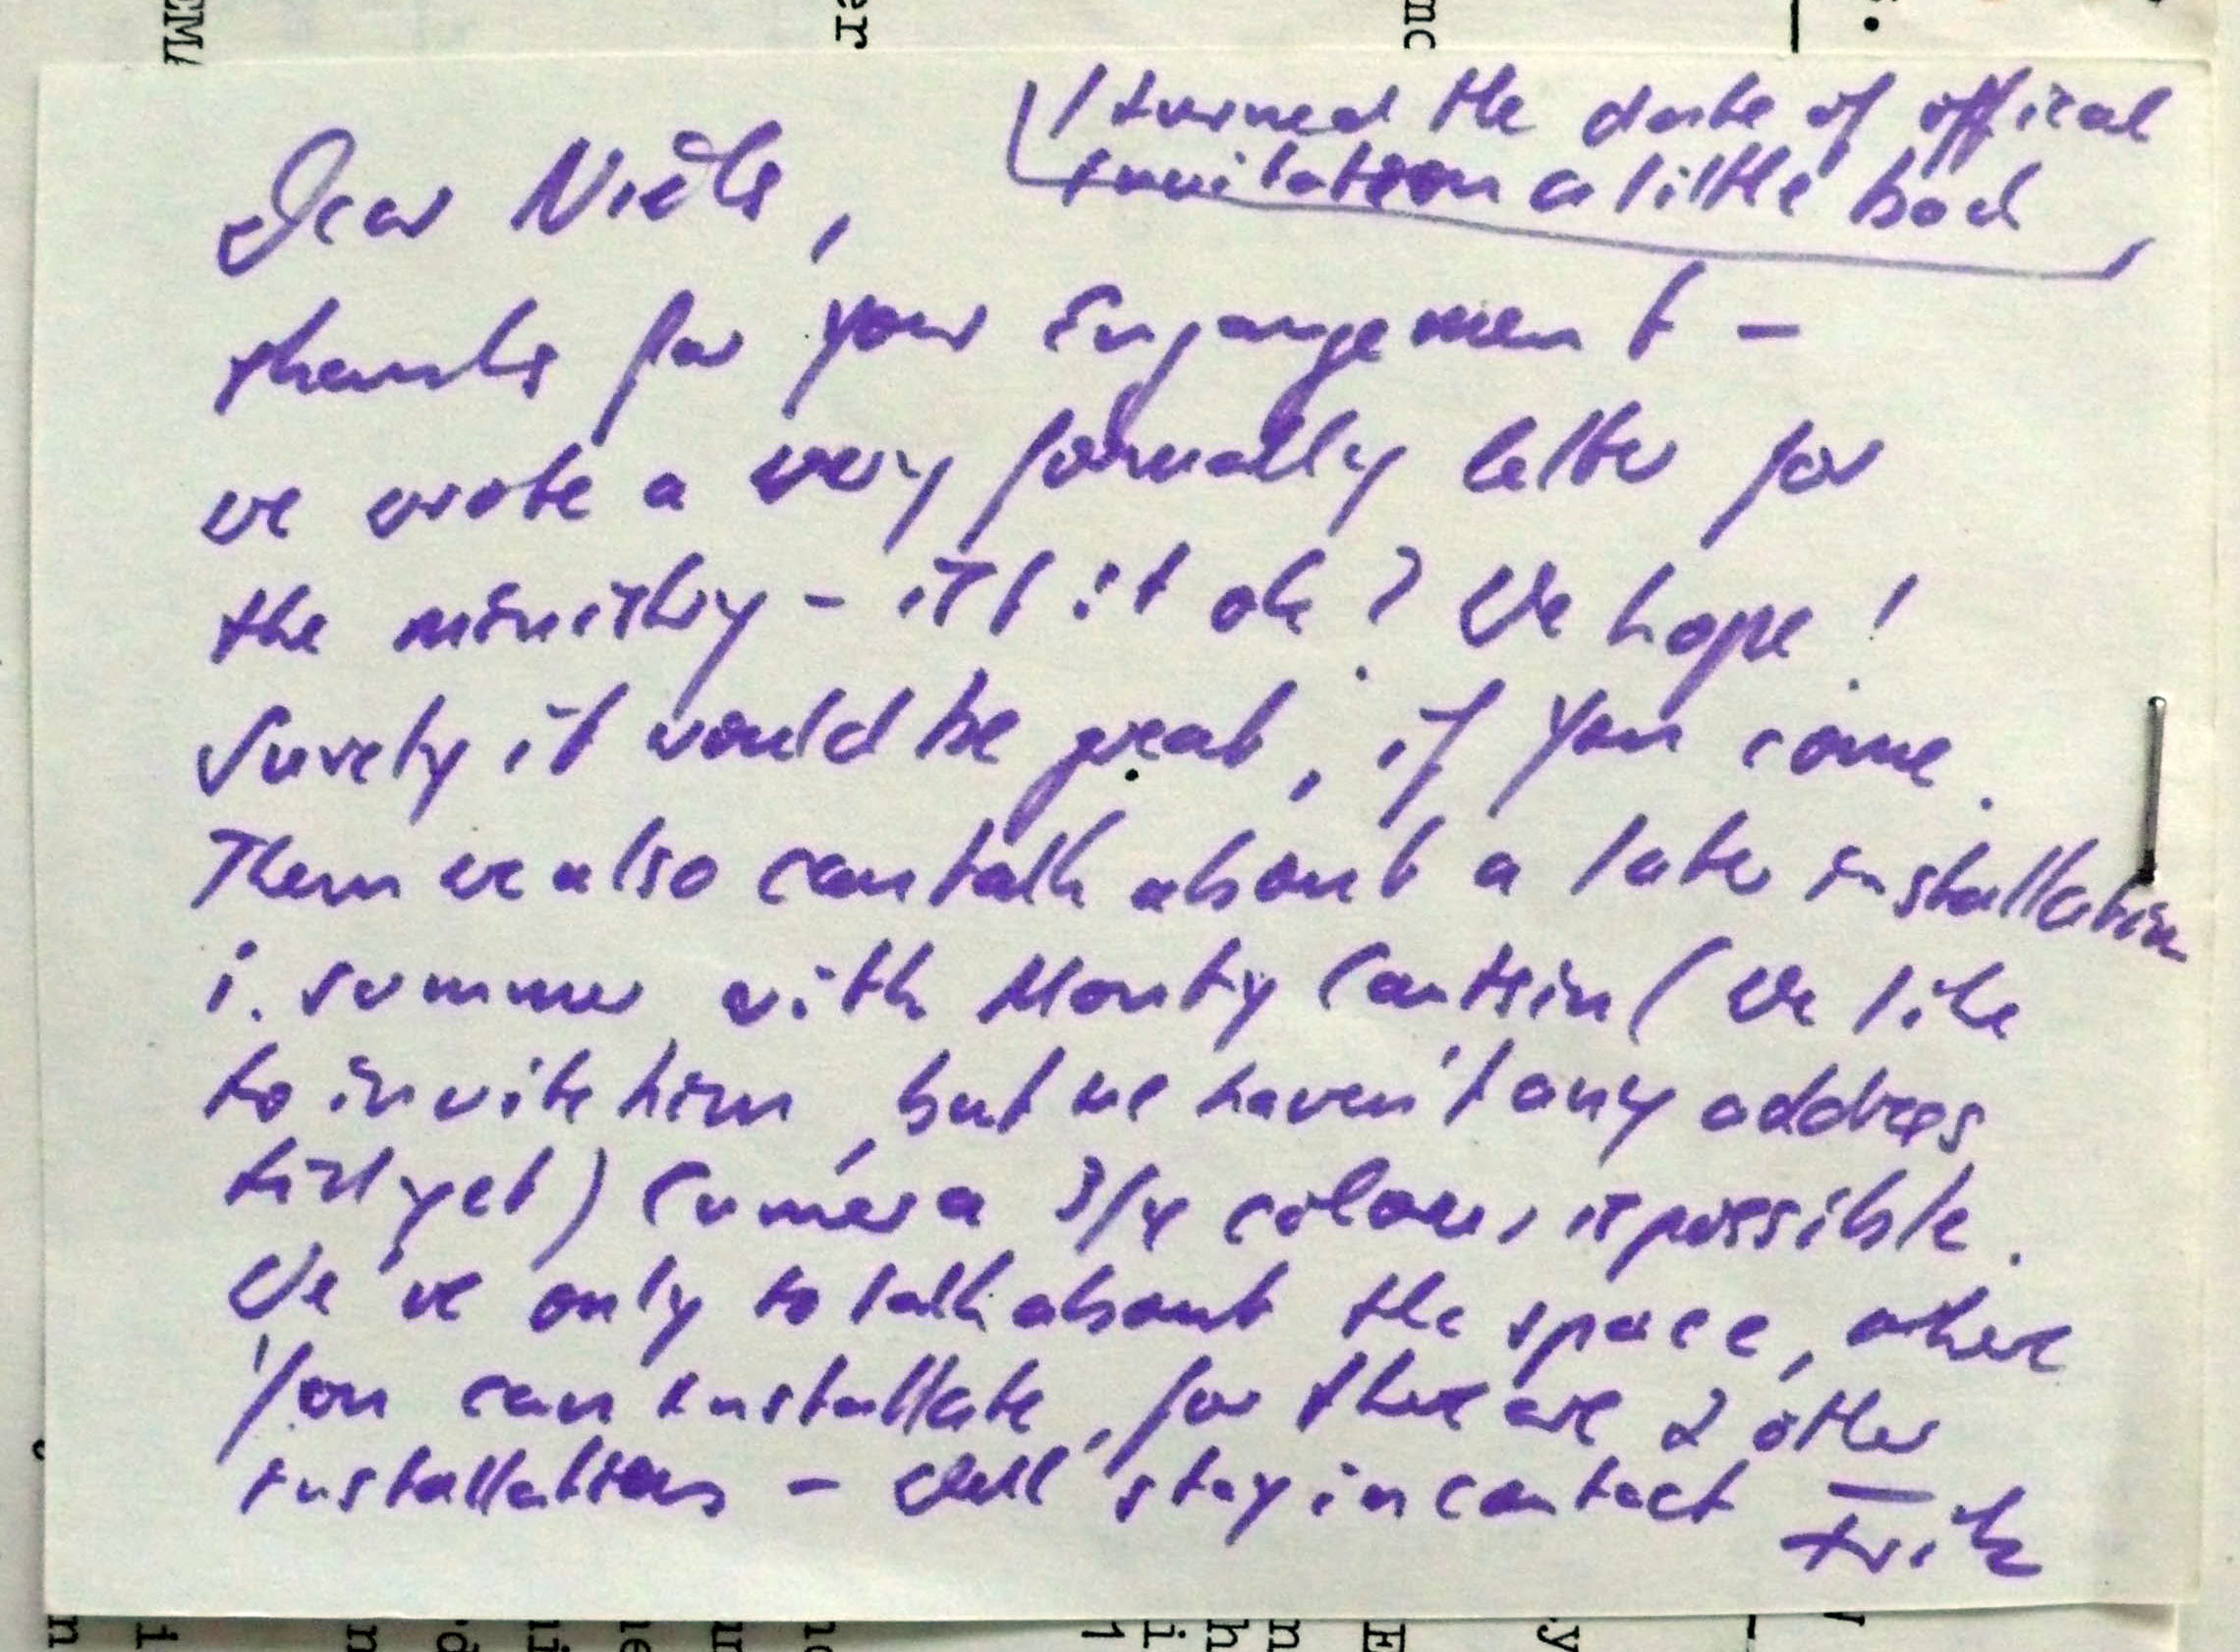 I turned the date of offical
invitation a little bad
Dear Niels,
thanks for your Engangement –
we wrote a very formally letter for
the ministry – ist it ok? We hope!
Surely it would be great, if you come.
Then we also can talk about a later installation
i. summer with Monty Cantsin (We like
to invite him, but we haven't any address
till yet) Camera 3/4 colour, is possible.
We've only to talk about the space, where
You can installate, for there are 2 other
installations – Well stay in contact –